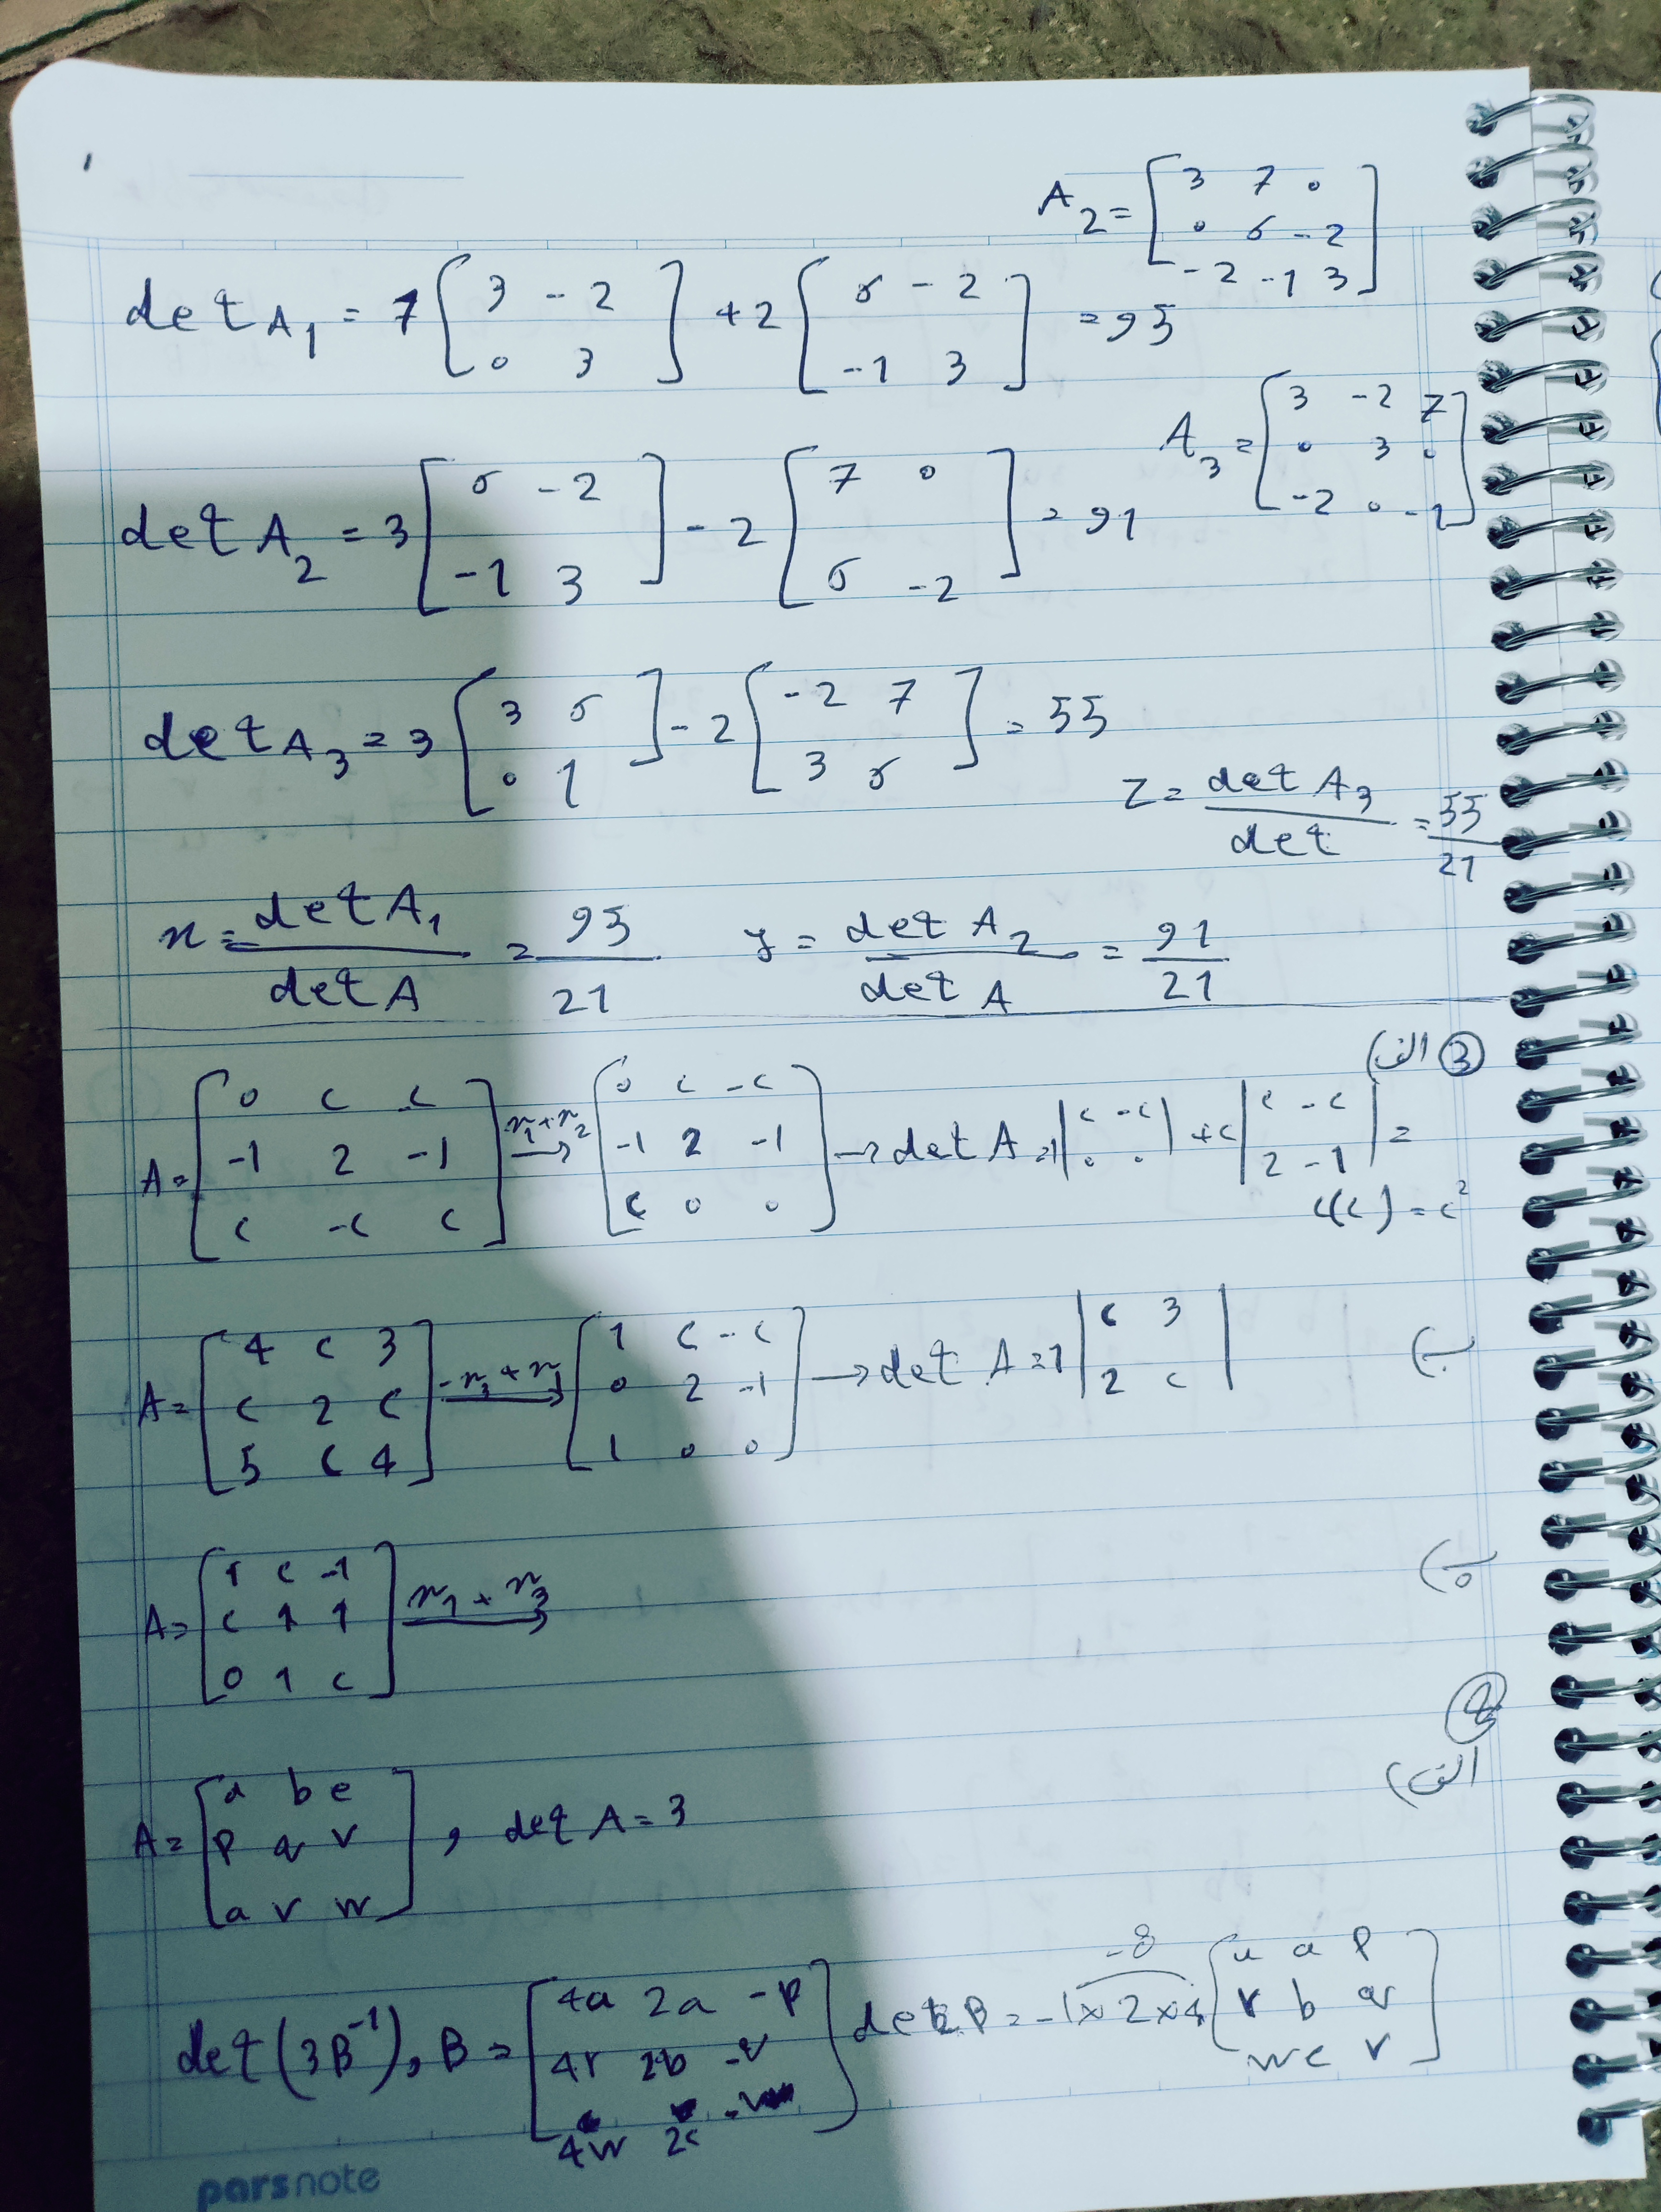 A₂ = [3 7 0; 0 5 -2; -2 -1 3]
det A₁ = 7 [3 -2; 0 3] + 2 [5 -2; -1 3] = 95
A₃ = [3 -2 7; 0 3 0; -2 0 -1]
det A₂ = 3 [5 -2; -1 3] - 2 [7 0; 5 -2] = 91
det A₃ = 3 [3 5; 0 1] - 2 [-2 7; 3 5] = 55
z = det A₃ / det = 55/21
x = det A₁ / det A = 95/21 y = det A₂ / det A = 91/21
③ الف)
A = [0 c -c; -1 2 -1; c -c c] r₁+r₂ → [0 c -c; -1 2 -1; c 0 0] → det A = 1 |c -c; 0 0| + c |c -c; 2 -1| =
c(c) = c²
ب)
A = [4 c 3; c 2 c; 5 c 4] -r₃+r₁ → [1 c -c; 0 2 -1; 1 0 0] → det A = 1 |c 3; 2 c|
A = [1 c -1; c 1 1; 0 1 c] r₁+r₃ →
الف)
A = [a b e; p q r; a v w] , det A = 3
det(3B⁻¹), B = [4a 2a -p; 4r 2b -q; 4w 2c] det B = -1×2×4 [u a p; v b q; w c r]
-8
parsnote